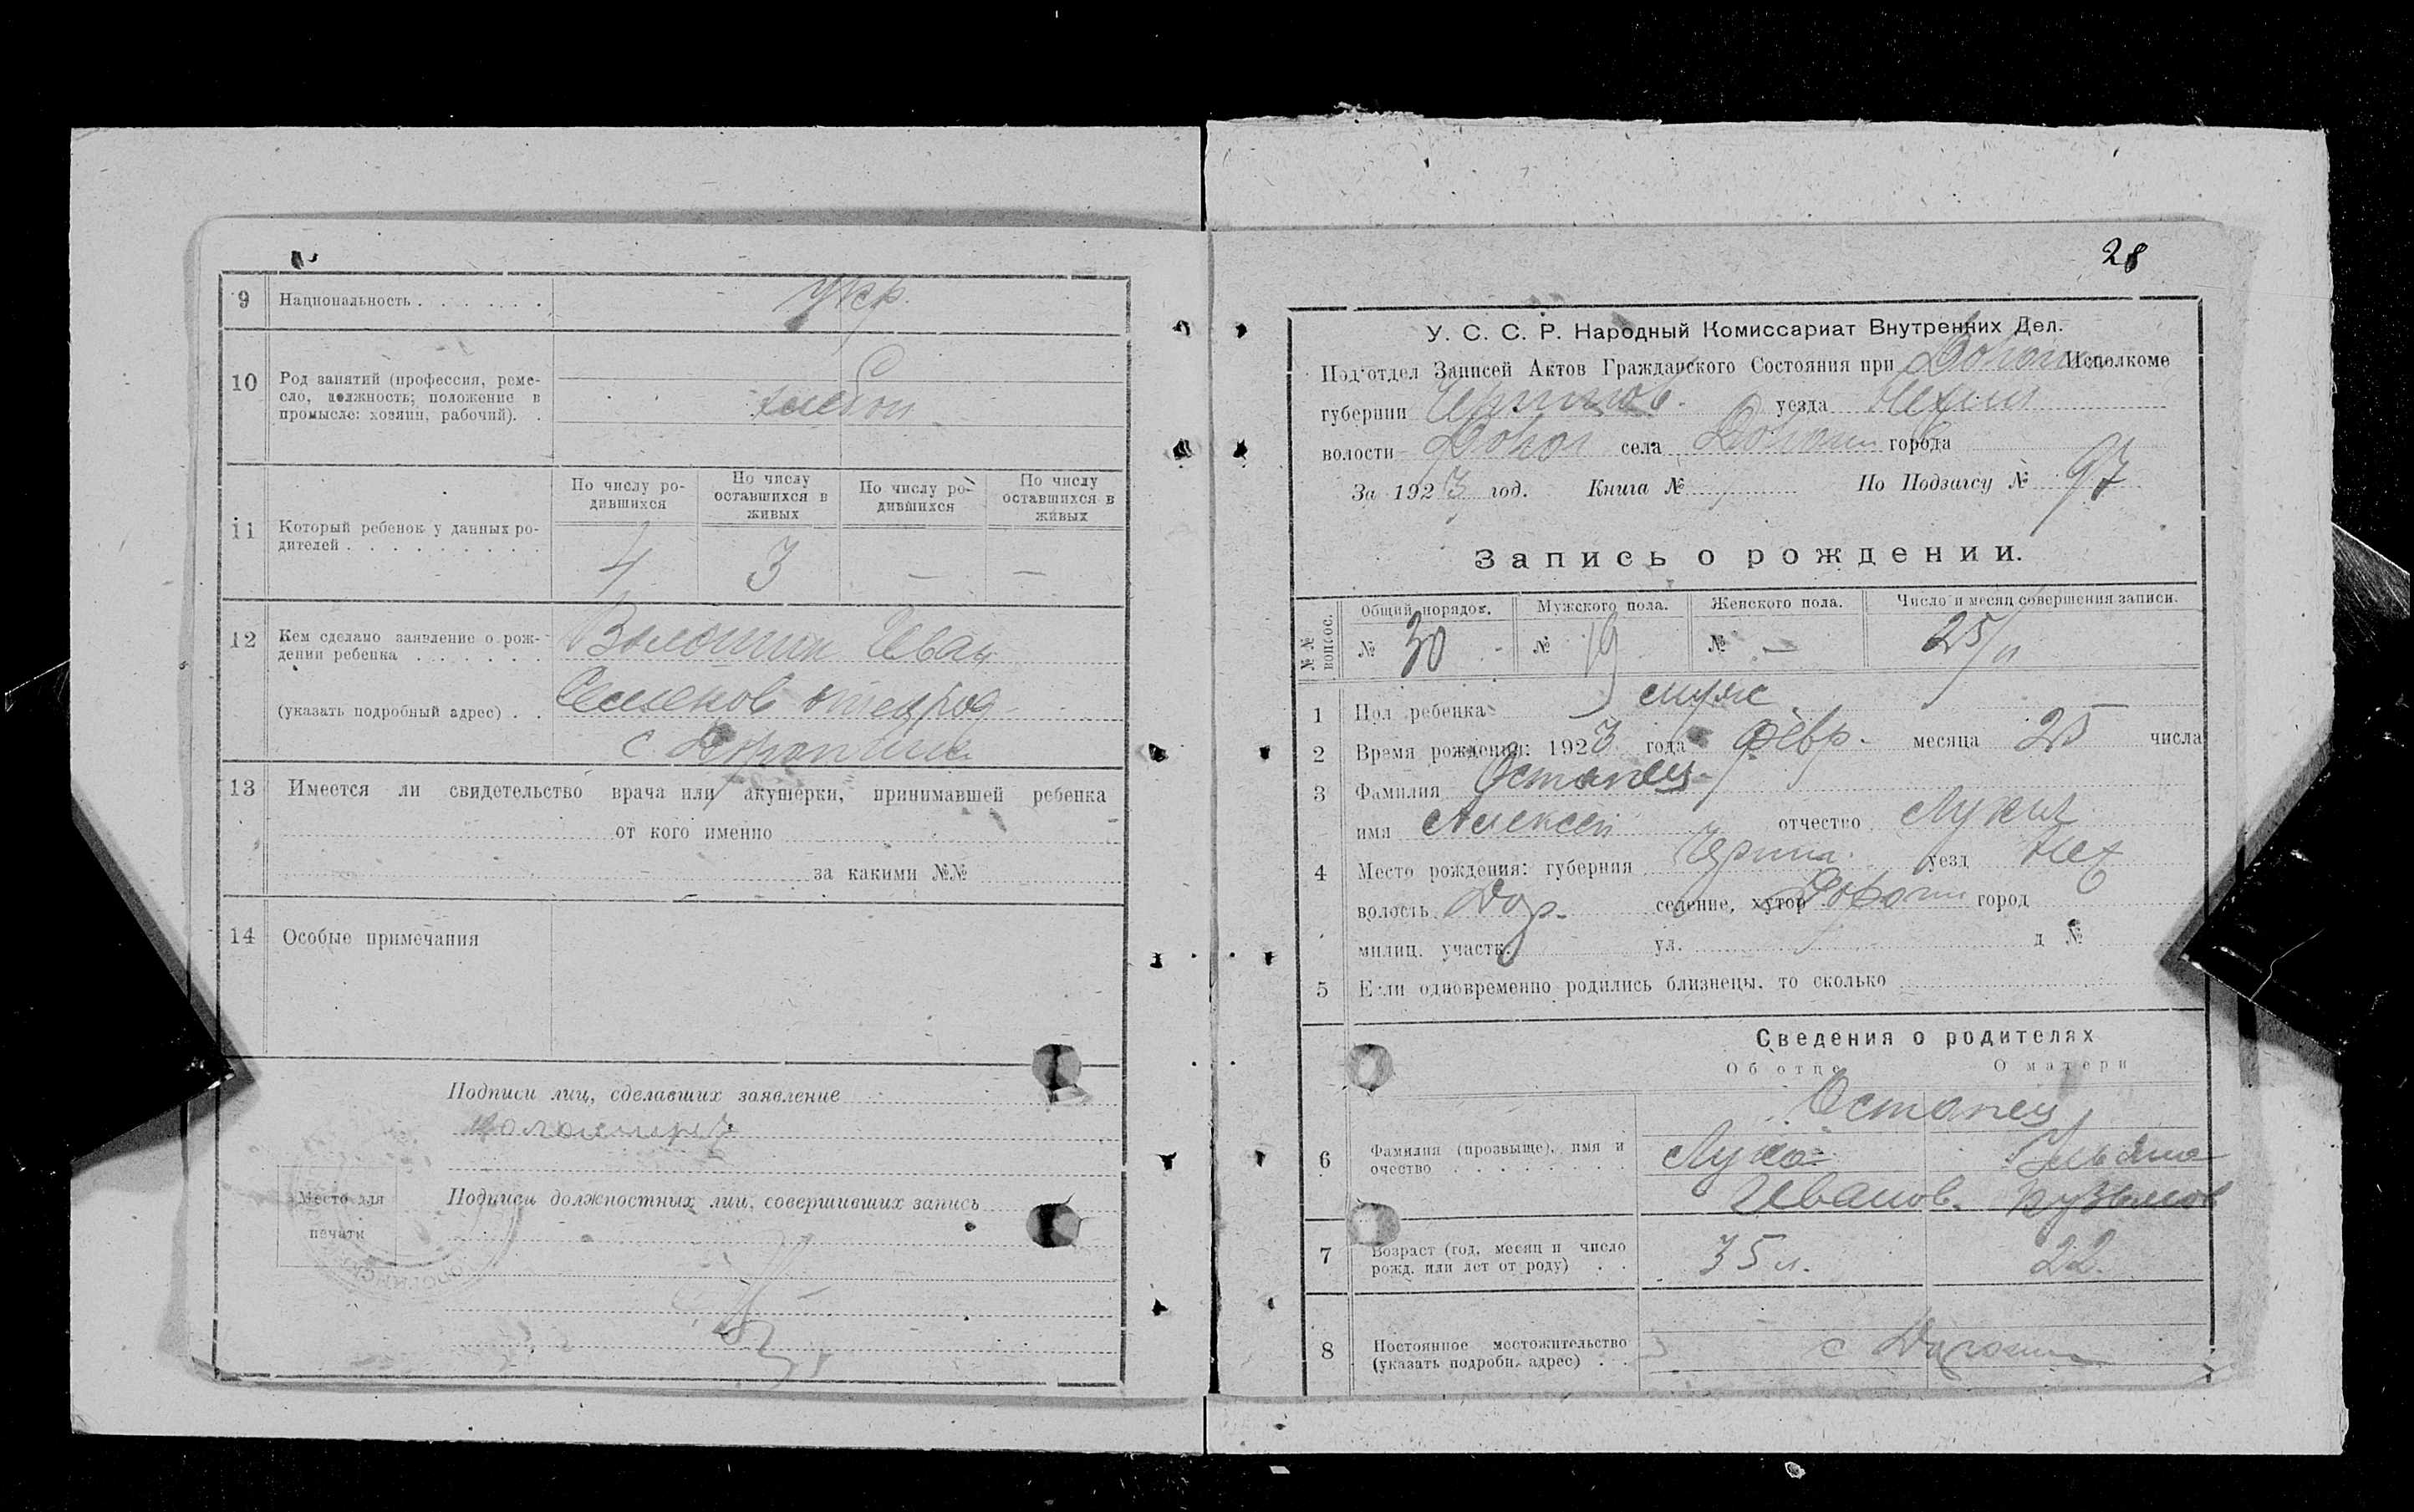 9 Национальность . . . . . . . Укр.
10 Род занятий (профессия, реме-
сло, должность; положение в
промысле: хозяин, рабочий). .
хлебоп
11 Который ребенок у данных ро-
дителей . . . . . . . . .
По числу ро-
дившихся
По числу
оставшихся в
живых
По числу ро-
дившихся
По числу
оставшихся в
живых
4 3 — —
12 Кем сделано заявление о рож-
дении ребенка . . . . . . .
Волошин Иван
(указать подробный адрес) . .
Семенов отец род
с
13 Имеется ли свидетельство врача или акушерки, принимавшей ребенка
от кого именно
за какими №№
14 Особые примечания
Подписи лиц, сделавших заявление
Место для
печати
Подписи должностных лиц, совершивших запись
28
У. С. С. Р. Народный Комиссариат Внутренних Дел.
Подотдел Записей Актов Гражданского Состояния при Исполкоме
губернии Чернигов. уезда Нежин
волости села города
За 1923 год. Книга № По Подзагсу № 97
Запись о рождении.
№№ вопрос.
Общий порядок. Мужского пола. Женского пола. Число и месяц совершения записи.
№ 30 № 19 № — 25/II
1 Пол ребенка муж
2 Время рождения: 1923 года февр. месяца 25 числа
3 Фамилия Остапец
имя Алексей отчество Лукич
4 Место рождения: губерния Черниг. уезд Неж
волость Дор. селение, хутор Дорогин город
милиц. участк. ул. д №
5 Если одновременно родились близнецы, то сколько
Сведения о родителях
Об отце О матери
6 Фамилия (прозвыще), имя и
очество . . . . . . . .
Остапец
Лука Ульяна
Иванов. Кузьмов
7 Возраст (год, месяц и число
рожд. или лет от роду) . .
35 л. 22.
8 Постоянное местожительство
(указать подробн. адрес) . .
с Дорогин